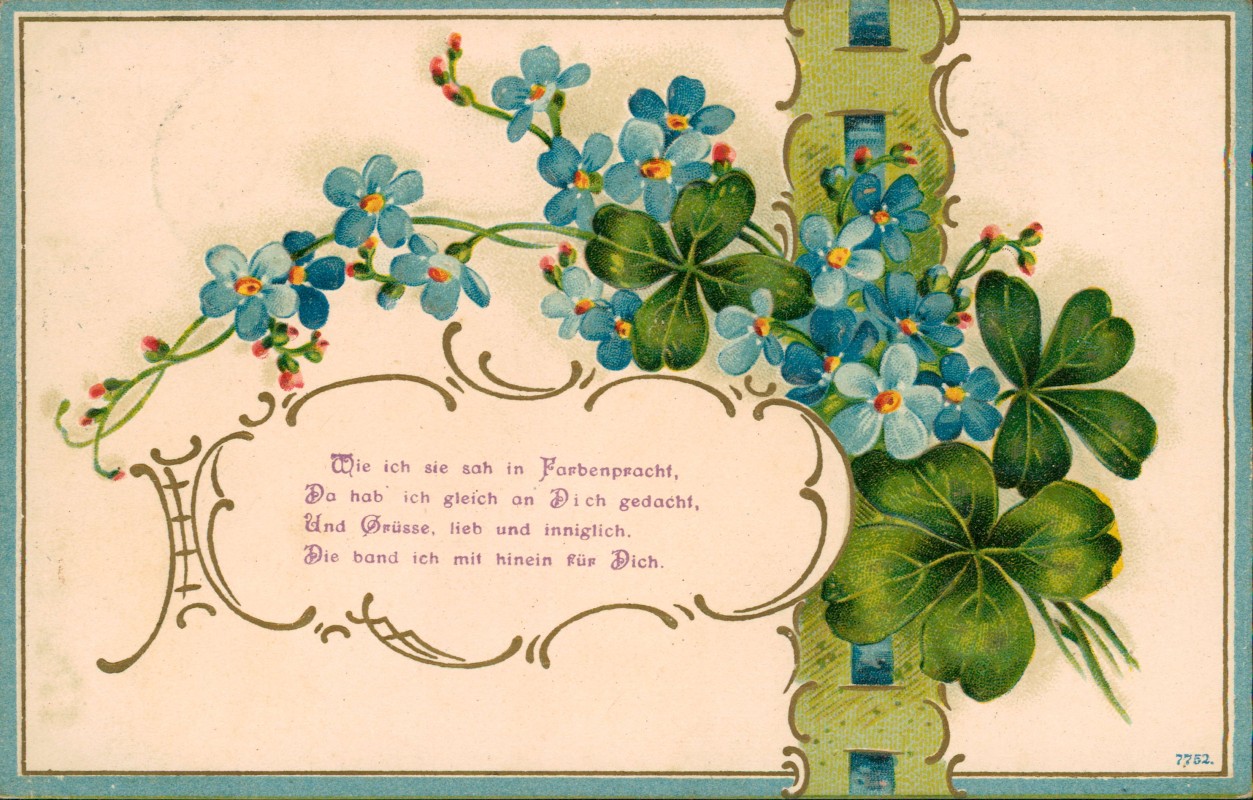 Wie ich sie sah in Farbenpracht,
Da hab' ich gleich an Dich gedacht,
Und Grüsse, lieb und inniglich.
Die band ich mit hinein für Dich.
7752.